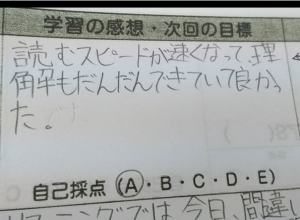 学習の感想・次回の目標
読むスピードが速くなって、理
解もだんだんできていて良かっ
た。
自己採点（A・B・C・D・E）
ングでは、今日、間違